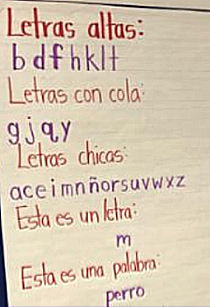 Letras altas:
b d f h k l t
Letras con cola:
g j q y
Letras chicas:
a c e i m n ñ o r s u v w x z
Esta es un letra:
m
Esta es una palabra:
perro